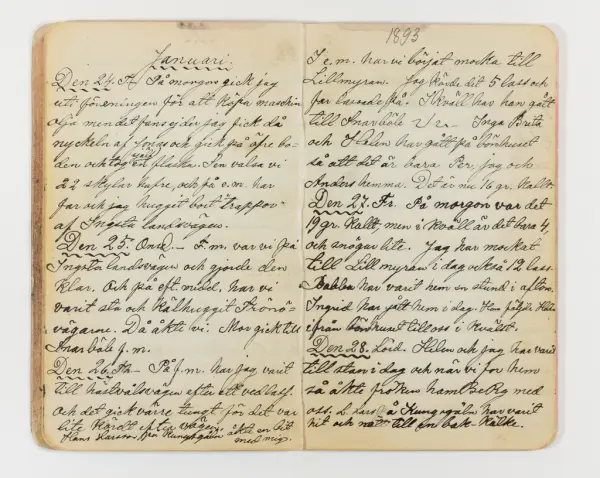 Januari.
Den 24. På morgon gick jag
uti föreningen för att köpa maskin
olja men det fans ej der jag fick då
nyckeln af Jonas och gick på öfre bo-
den och tog en flaska. Sen valsa vi
22 skylar hafre, och på e.m. har
far och jag hugget bort "trappor"
af Ingsta landsvägen.
Den 25. Ons. – F.m. var vi på
Ingsta landsvägen och gjorde den
klar. Och på eft midd. har vi
varit sta och kälhuggit
vägarne. Då åkte vi. Mor gick till
Snarböle f.m.
Den 26. – På f.m. har jag varit
till hästvålsvägen efter ett vedlass.
och det gick värre tungt för det var
lite kärdt efter vägen.
Hans Larsson åkte en bit
med mig.
1893
I e.m. har vi börjat mocka till
Lillmyran. Jag körde dit 5 lass och
far lassade på. I kväll har han gått
till Snarböle Inga Brita
och Helen har gått på bönhuset
så att det är bara Per, jag och
Anders hemma. Det är nu 16 gr. kallt.
Den 27. Fr. På morgon var det
19 gr. kallt, men i kväll är det bara 4,
och snögar lite. Jag har mockat
till Lillmyran i dag också 12 lass.
har varit hem en stund i afton.
Ingrid har gått hem i dag. Hon följde Helen
ifrån bönhuset till oss i kväll.
Den 28. Lörd. Helen och jag har varit
till stan i dag och när vi for hem
så åkte fröken hamberg med
oss. L. Lars å Kungsgåln har varit
hit och mått till en bak-kälke.